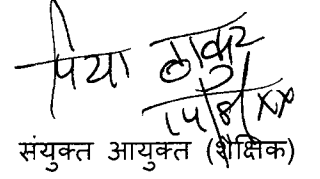 पिया ठाकुर
14/8/xx
संयुक्त आयुक्त (शैक्षिक)